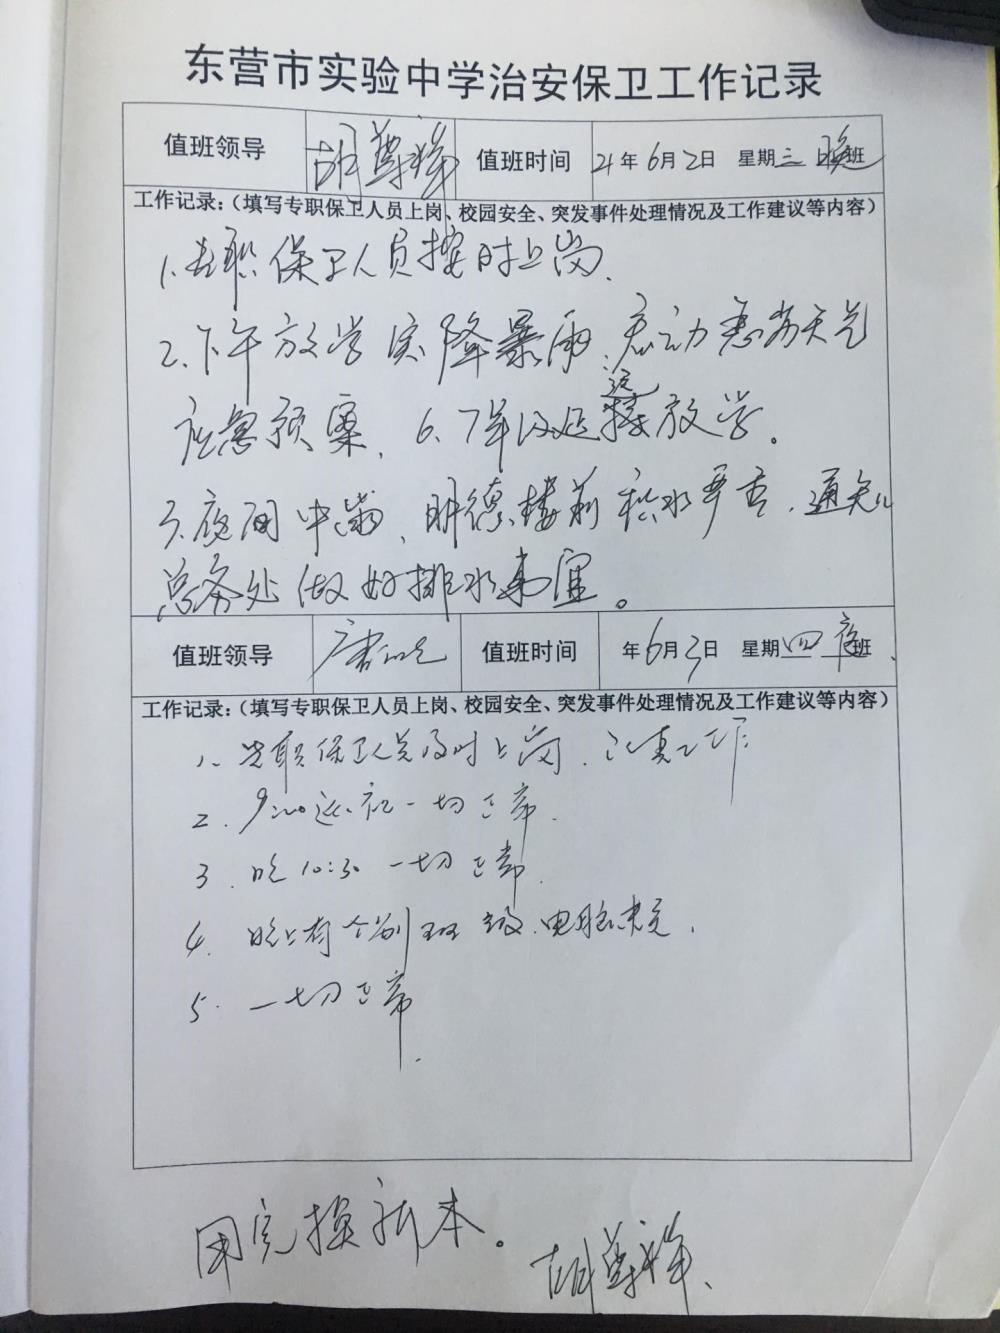 东营市实验中学治安保卫工作记录
值班领导 胡尊祥 值班时间 21年6月2日 星期三 晚班
工作记录：（填写专职保卫人员上岗、校园安全、突发事件处理情况及工作建议等内容）
1.专职保卫人员按时上岗.
2.下午放学突降暴雨、启动恶劣天气
应急预案，6.7年级延迟放学。
3.夜间中漏、明德楼前积水严重，通知
总务处做好排水事宜。
值班领导 值班时间 年6月3日 星期四 夜班
工作记录：（填写专职保卫人员上岗、校园安全、突发事件处理情况及工作建议等内容）
1. 专职保卫人员及时上岗.认真工作
2. 9:00巡视一切正常.
3. 晚10:30 一切正常.
4. 晚上有个别班级电脑未关.
5. 一切正常.
用完换新本。
胡尊祥.